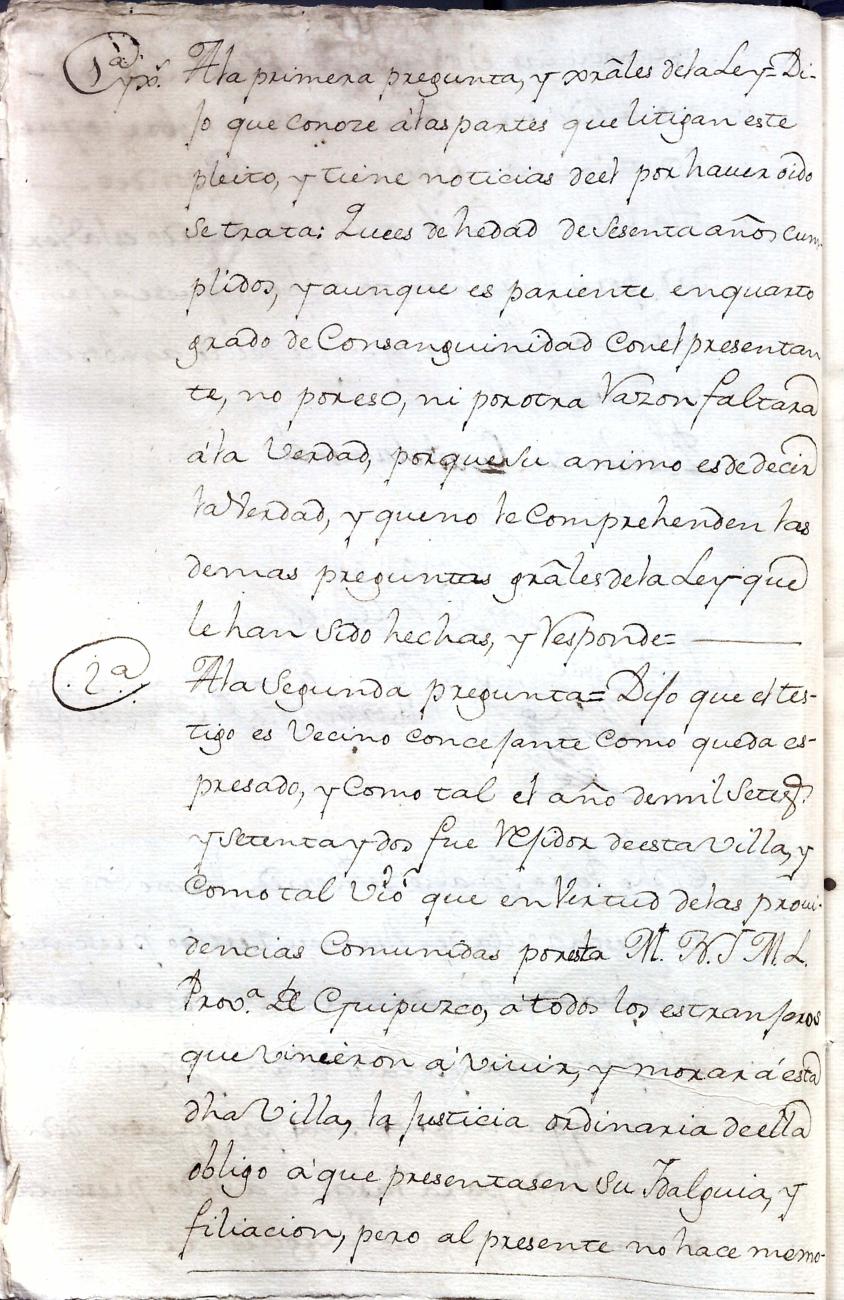 1ª y xs.
A la primera pregunta, y xrãles de la Ley= Di-
jo que conoze â las partes que litigan este
pleito, y tiene noticias de el por hauer oido
se trata: Que es de hedad de sesenta años cum-
plidos, y aunque es pariente en quarto
grado de Consanguinidad con el presentan
te, no por eso, ni por otra Razon faltara
á la Verdad, porque su animo es de decir
la Verdad, y que no le Comprehenden las
demas preguntas grãles de la Ley que
le han sido hechas, y Responde=
2ª
A la Segunda pregunta= Dijo que el tes-
tigo es Vecino concejante como queda es-
presado, y Como tal el año de mil Setezs.
y setenta y dos fue Rejidor de esta Villa, y
Como tal Vió que en Virtud de las proui-
dencias Comunidas por esta M. N. Y M. L.
Prov.ª de Guipuzco, á todos los estranjeros
que vinieron á viuir, y morar á esta
dha Villa, la Justicia ordinaria de ella
obligo á que presentasen su Ydalguia, y
filiacion, pero al presente no hace memo-